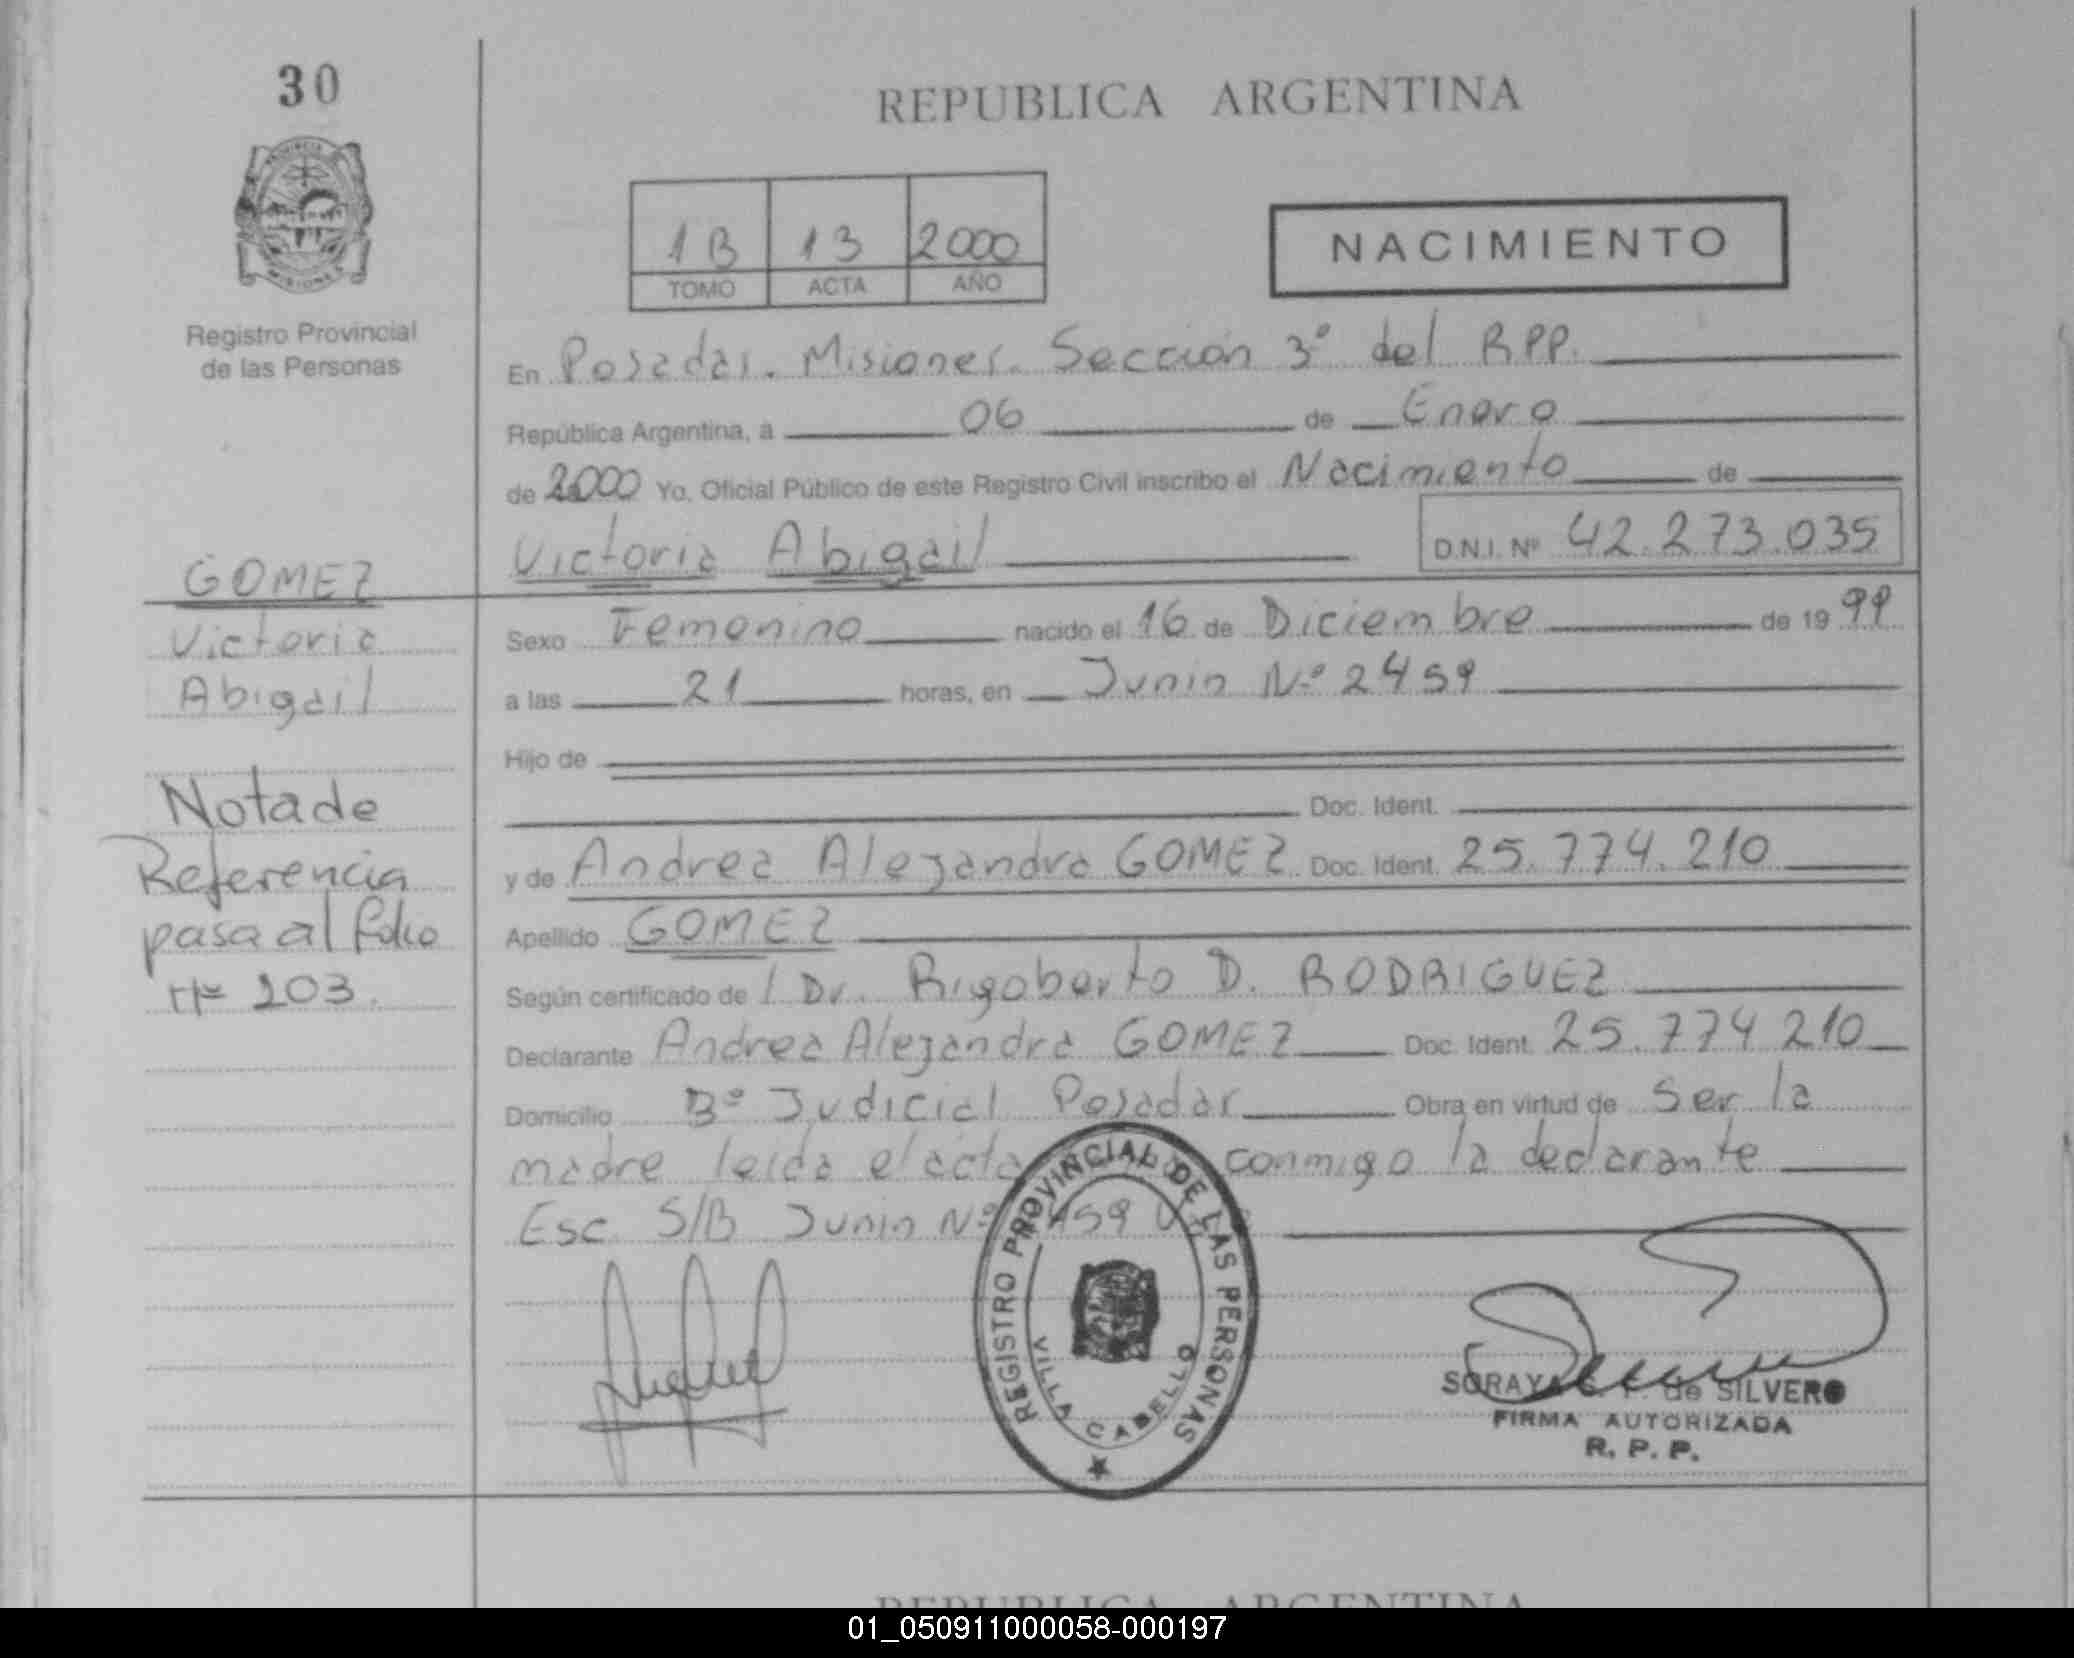 30
REPUBLICA ARGENTINA
1B 13 2000
TOMO ACTA AÑO
NACIMIENTO
Registro Provincial
de las Personas
En Posadas. Misiones. Sección 3º del RPP.
República Argentina, a 06 de Enero
de 2000 Yo. Oficial Público de este Registro Civil inscribo el Nacimiento de
Victoria Abigail D.N.I. Nº 42.273.035
GOMEZ
Victoria
Abigail
Sexo Femenino nacido el 16 de Diciembre de 1999
a las 21 horas, en Junin Nº 2459
Hijo de
Doc. Ident.
Nota de
Referencia
pasa al folio
nº 203.
y de Andrea Alejandra GOMEZ Doc. Ident. 25.774.210
Apellido GOMEZ
Según certificado de Dr. Rigoberto D. RODRIGUEZ
Declarante Andrea Alejandra GOMEZ Doc. Ident. 25.774 210
Domicilio Bº Judicial Posadas Obra en virtud de Ser la
madre leida el acta conmigo la declarante
Esc. S/B Junin Nº 2459
REGISTRO PROVINCIAL DE LAS PERSONAS
VILLA CABELLO
SORAYA de SILVERO
FIRMA AUTORIZADA
R. P. P.
REPUBLICA ARGENTINA
01_050911000058-000197